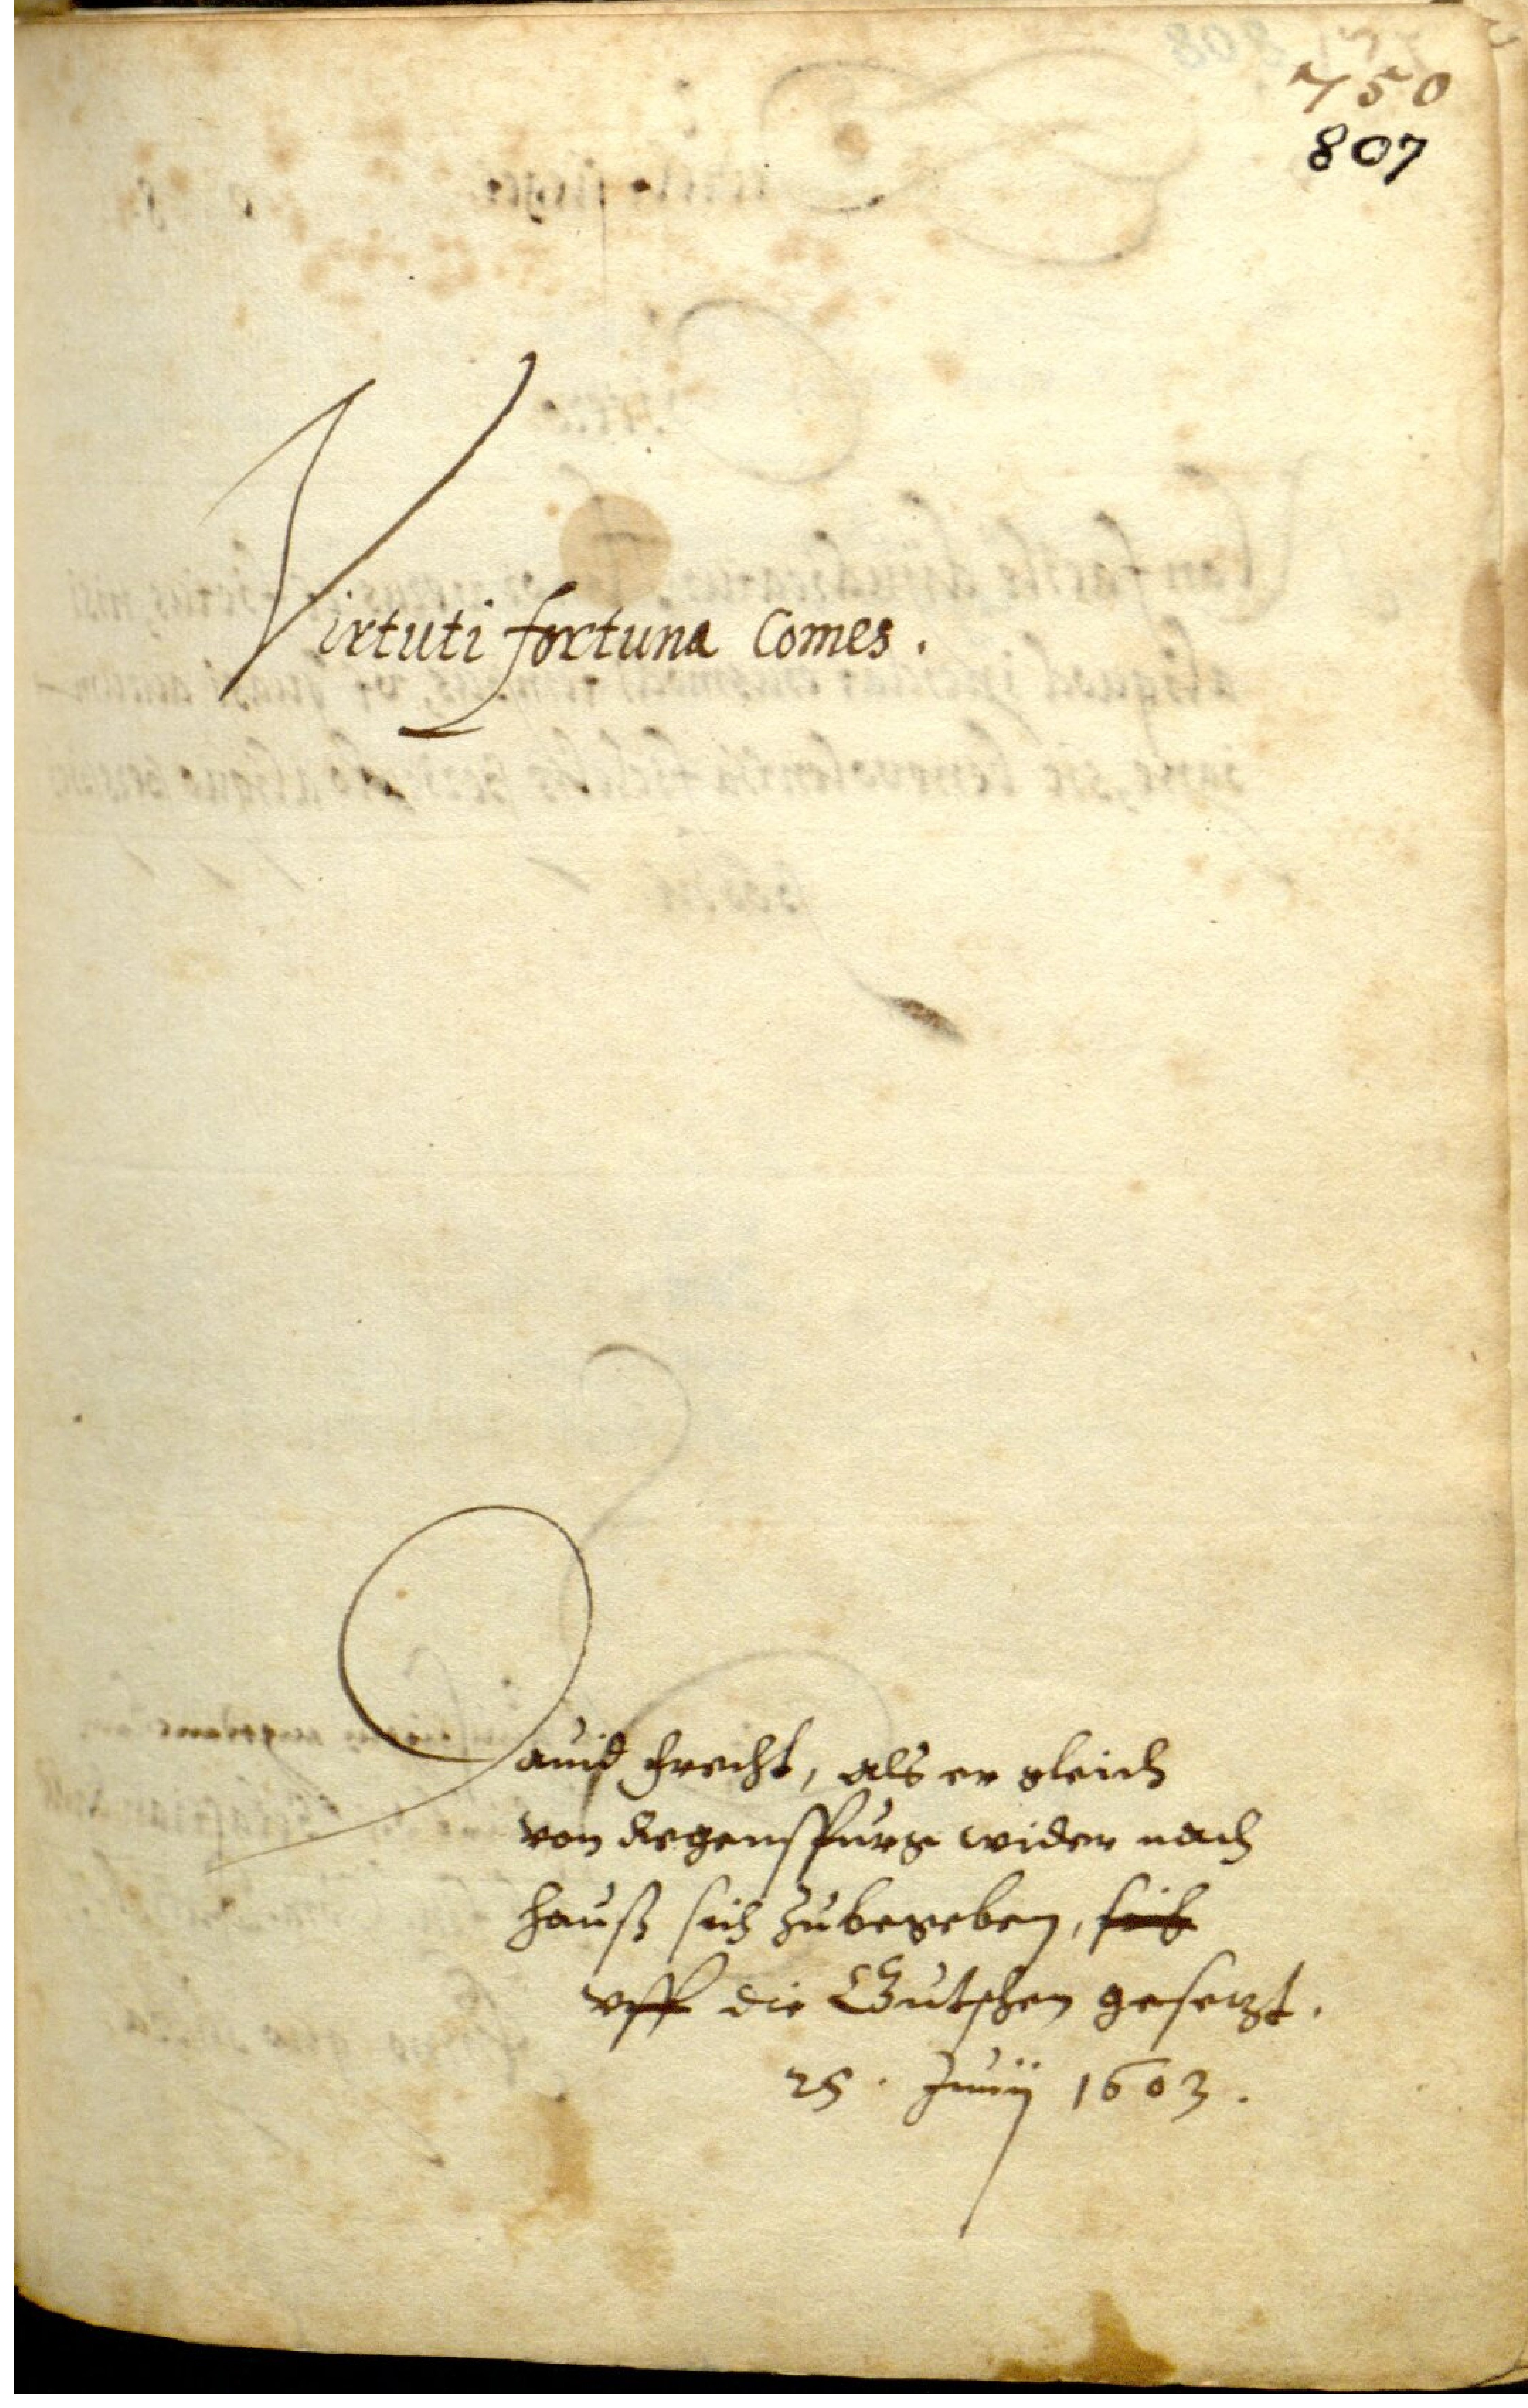 750
807
Virtuti fortuna Comes.
Dauid Frecht, als er gleich
von Regenspurg wider nach
hauß sich zubegeben,
vff die Gutschen gesetzt.
25. Junij 1603.